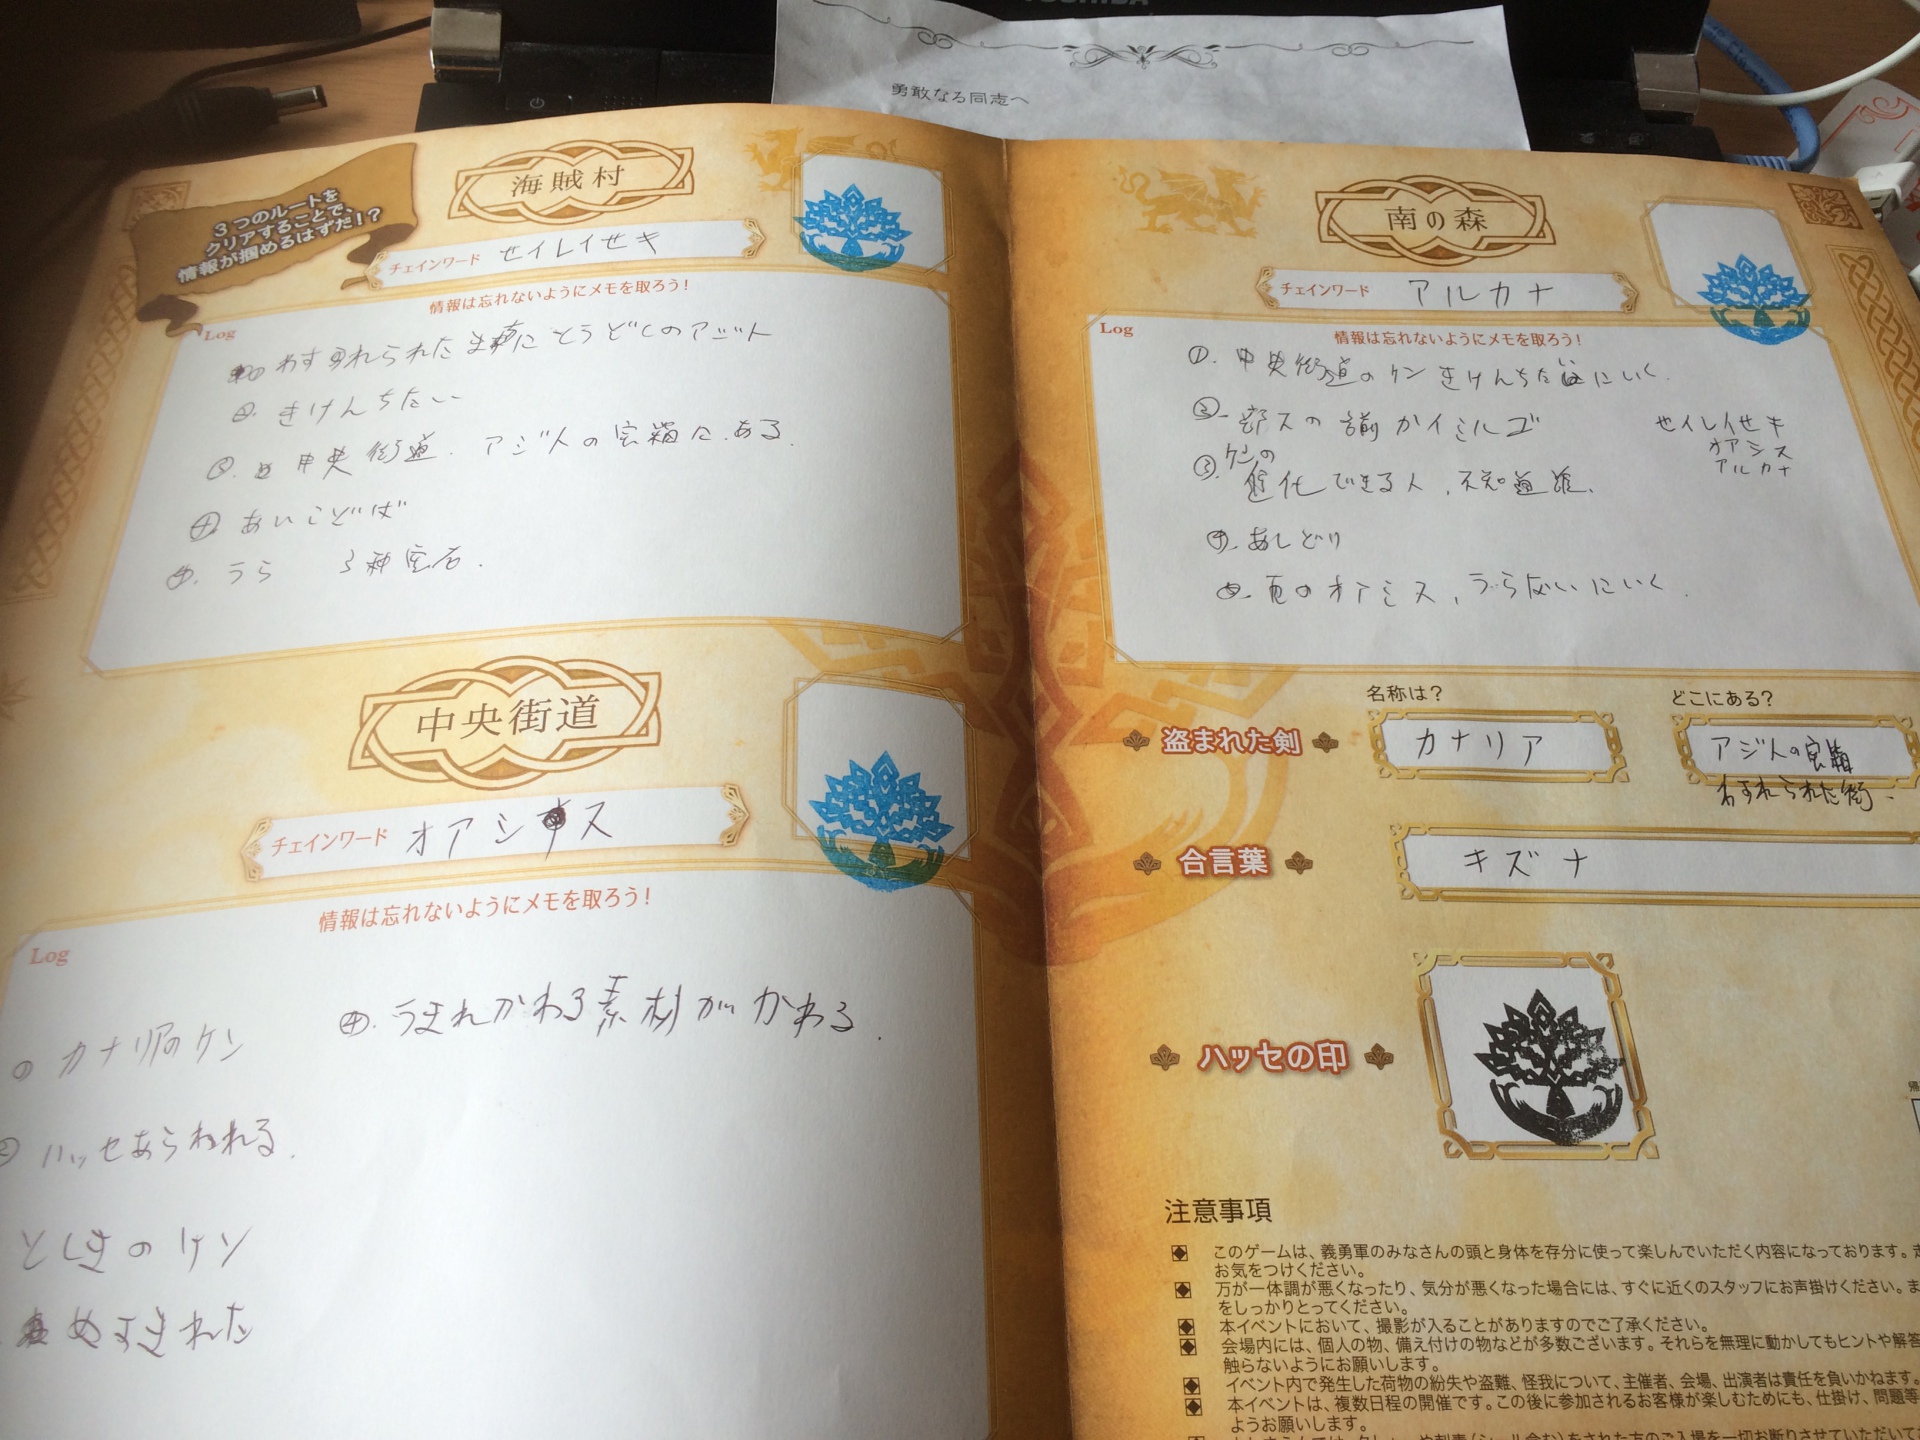 勇敢なる同志へ
3つのルートを
クリアすることで、
情報が掴めるはずだ!?
海賊村
チェインワード セイレイセキ
情報は忘れないようにメモを取ろう!
Log
られた とうどしのアジト
②. きけんちたい
③. 中央街道. アジトの宝箱に.ある.
④ あいことば
うら 3種宝石.
中央街道
チェインワード オアシス
情報は忘れないようにメモを取ろう!
Log
カナリアのケン
④. うまれかわる素材がかわる.
② ハッセあらわれる.
のケン
ぬすまれた
南の森
チェインワード アルカナ
Log
情報は忘れないようにメモを取ろう!
①. 中央街道のケン きけんちたいにいく.
②. の
③. ケンの
進化できる人, 不知道誰.
セイレイセキ
オアシス
アルカナ
④. あしどり
のオアシス, うらないにいく.
名称は?
どこにある?
盗まれた剣
カナリア
アジトの宝箱
わすれられた街.
合言葉
キズナ
ハッセの印
注意事項
このゲームは、義勇軍のみなさんの頭と身体を存分に使って楽しんでいただく内容になっております。
お気をつけください。
万が一体調が悪くなったり、気分が悪くなった場合には、すぐに近くのスタッフにお声掛けください。
をしっかりとってください。
本イベントにおいて、撮影が入ることがありますのでご了承ください。
会場内には、個人の物、備え付けの物などが多数ございます。それらを無理に動かしてもヒントや解答
触らないようにお願いします。
イベント内で発生した荷物の紛失や盗難、怪我について、主催者、会場、出演者は責任を負いかねます。
本イベントは、複数日程の開催です。この後に参加されるお客様が楽しむためにも、仕掛け、問題等
ようお願いします。